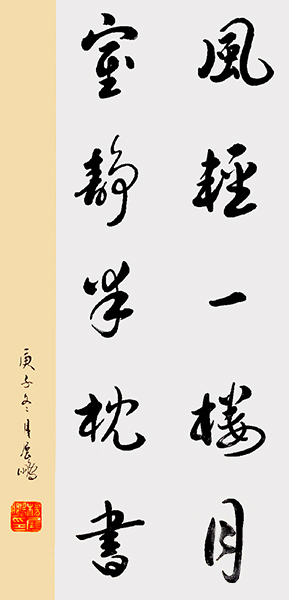 風輕一樓月
室靜半枕書
庚子冬月